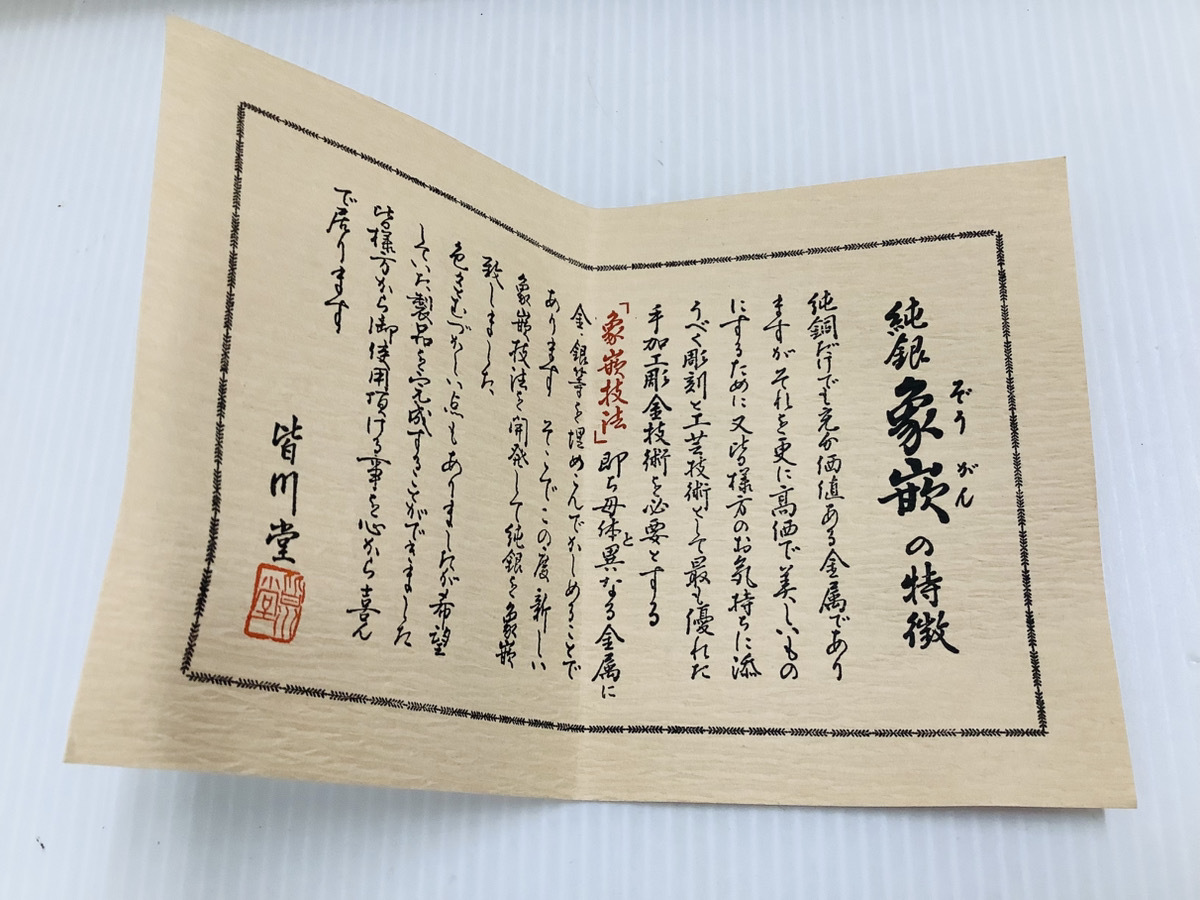 純銀象嵌の特徴
ぞうがん
純銅だけでも充分価値ある金属であり
ますがそれを更に高価で美しいもの
にするために又皆様方のお気持ちに添
うべく彫刻と工芸技術として最も優れた
手加工彫金技術を必要とする
「象嵌技法」即ち母体と異なる金属に
金、銀等を埋めこんでかしめることで
あります そこでこの度新しい
象嵌技法を開発して純銀を象嵌
致しました
色々とむづかしい点もありましたが希望
していた製品を完成することができました
皆様方から御使用頂ける事を心から喜ん
で居ります
皆川堂